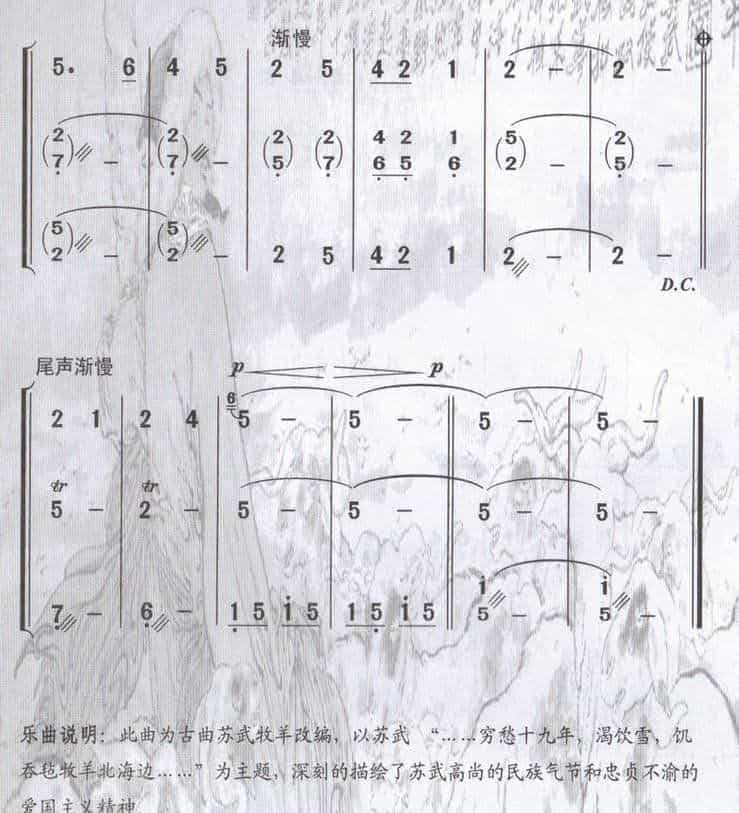 渐慢
5. 6 | 4 5 | 2 5 | 4 2 1 | 2 – | 2 –
(2 7) – | (2 7) – | (2 5) (2 7) | 4 6 2 5 1 6 | (5 2) – | (2 5) –
(5 2) – | (5 2) – | 2 5 | 4 2 1 | 2 – | 2 –
D.C.
尾声渐慢
p p
2 1 | 2 4 | 6 5 – | 5 – | 5 – | 5 –
tr tr
5 – | 2 – | 5 – | 5 – | 5 – | 5 –
7 – | 6 – | 1 5 i 5 | 1 5 i 5 | i 5 – | i 5 –
乐曲说明：此曲为古曲苏武牧羊改编，以苏武 “……穷愁十九年，渴饮雪，饥
吞毡牧羊北海边……”为主题，深刻的描绘了苏武高尚的民族气节和忠贞不渝的
爱国主义精神